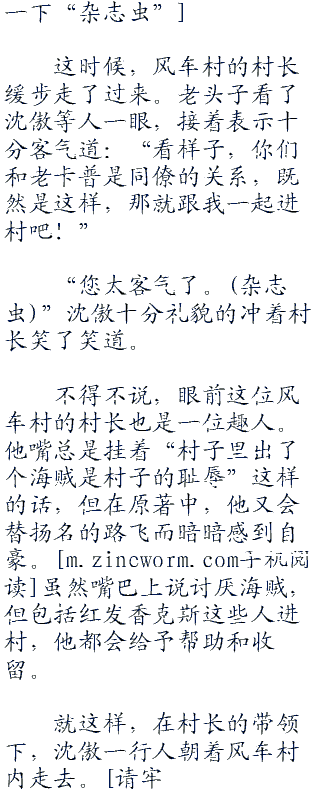 一下“杂志虫”]
这时候，风车村的村长
缓步走了过来。老头子看了
沈傲等人一眼，接着表示十
分客气道：“看样子，你们
和老卡普是同僚的关系，既
然是这样，那就跟我一起进
村吧！”
“您太客气了。(杂志
虫)”沈傲十分礼貌的冲着村
长笑了笑道。
不得不说，眼前这位风
车村的村长也是一位趣人。
他嘴总是挂着“村子里出了
个海贼是村子的耻辱”这样
的话，但在原著中，他又会
替扬名的路飞而暗暗感到自
豪。[m.zincworm.com手机阅
读]虽然嘴巴上说讨厌海贼，
但包括红发香克斯这些人进
村，他都会给予帮助和收
留。
就这样，在村长的带领
下，沈傲一行人朝着风车村
内走去。[请牢